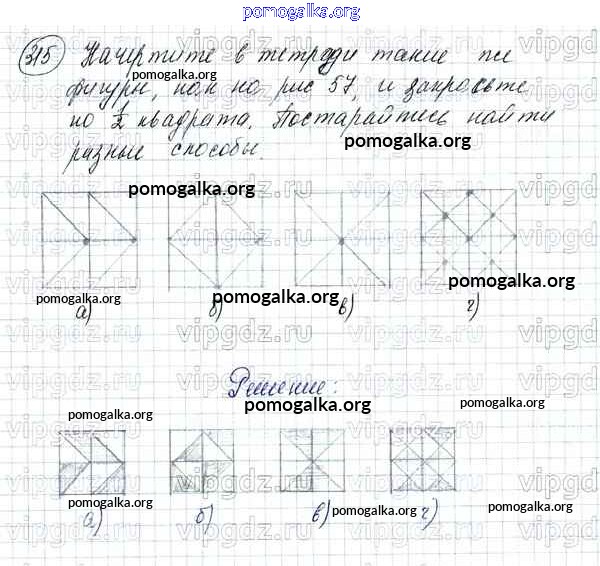 pomogalka.org
315 Начертите в тетради такие же
pomogalka.org
фигуры, как на рис 57, и закрасьте
по 1/2 квадрата. Постарайтесь найти
pomogalka.org
разные способы.
pomogalka.org
pomogalka.org
pomogalka.org
pomogalka.org
pomogalka.org
а) б) в) г)
Решение:
pomogalka.org
pomogalka.org
pomogalka.org
pomogalka.org
pomogalka.org
pomogalka.org
pomogalka.org
а) б) в) г)
vipgdz.ru